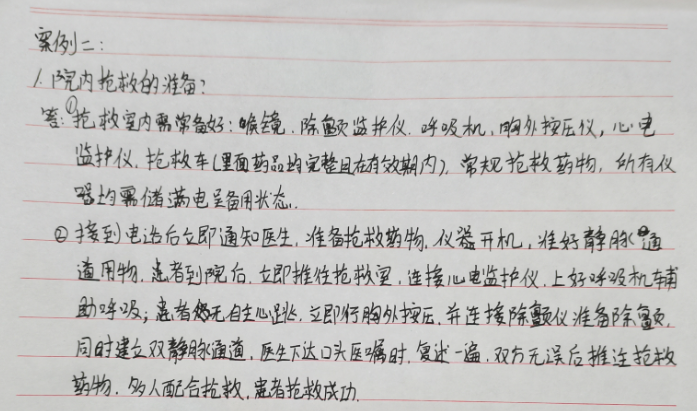 案例二:
1.院内抢救的准备?
答:①抢救室内需常备好:喉镜、除颤监护仪、呼吸机、胸外按压仪、心电
监护仪、抢救车(里面药品均完整且在有效期内)、常规抢救药物,所有仪
器均需储满电呈备用状态.
②接到电话后立即通知医生,准备抢救药物、仪器开机,准好静脉通
道用物,患者到院后,立即推住抢救室,连接心电监护仪,上好呼吸机辅
助呼吸;患者无自主心跳,立即行胸外按压,并连接除颤仪准备除颤,
同时建立双静脉通道,医生下达口头医嘱时,复述一遍,双方无误后推连抢救
药物,多人配合抢救,患者抢救成功.